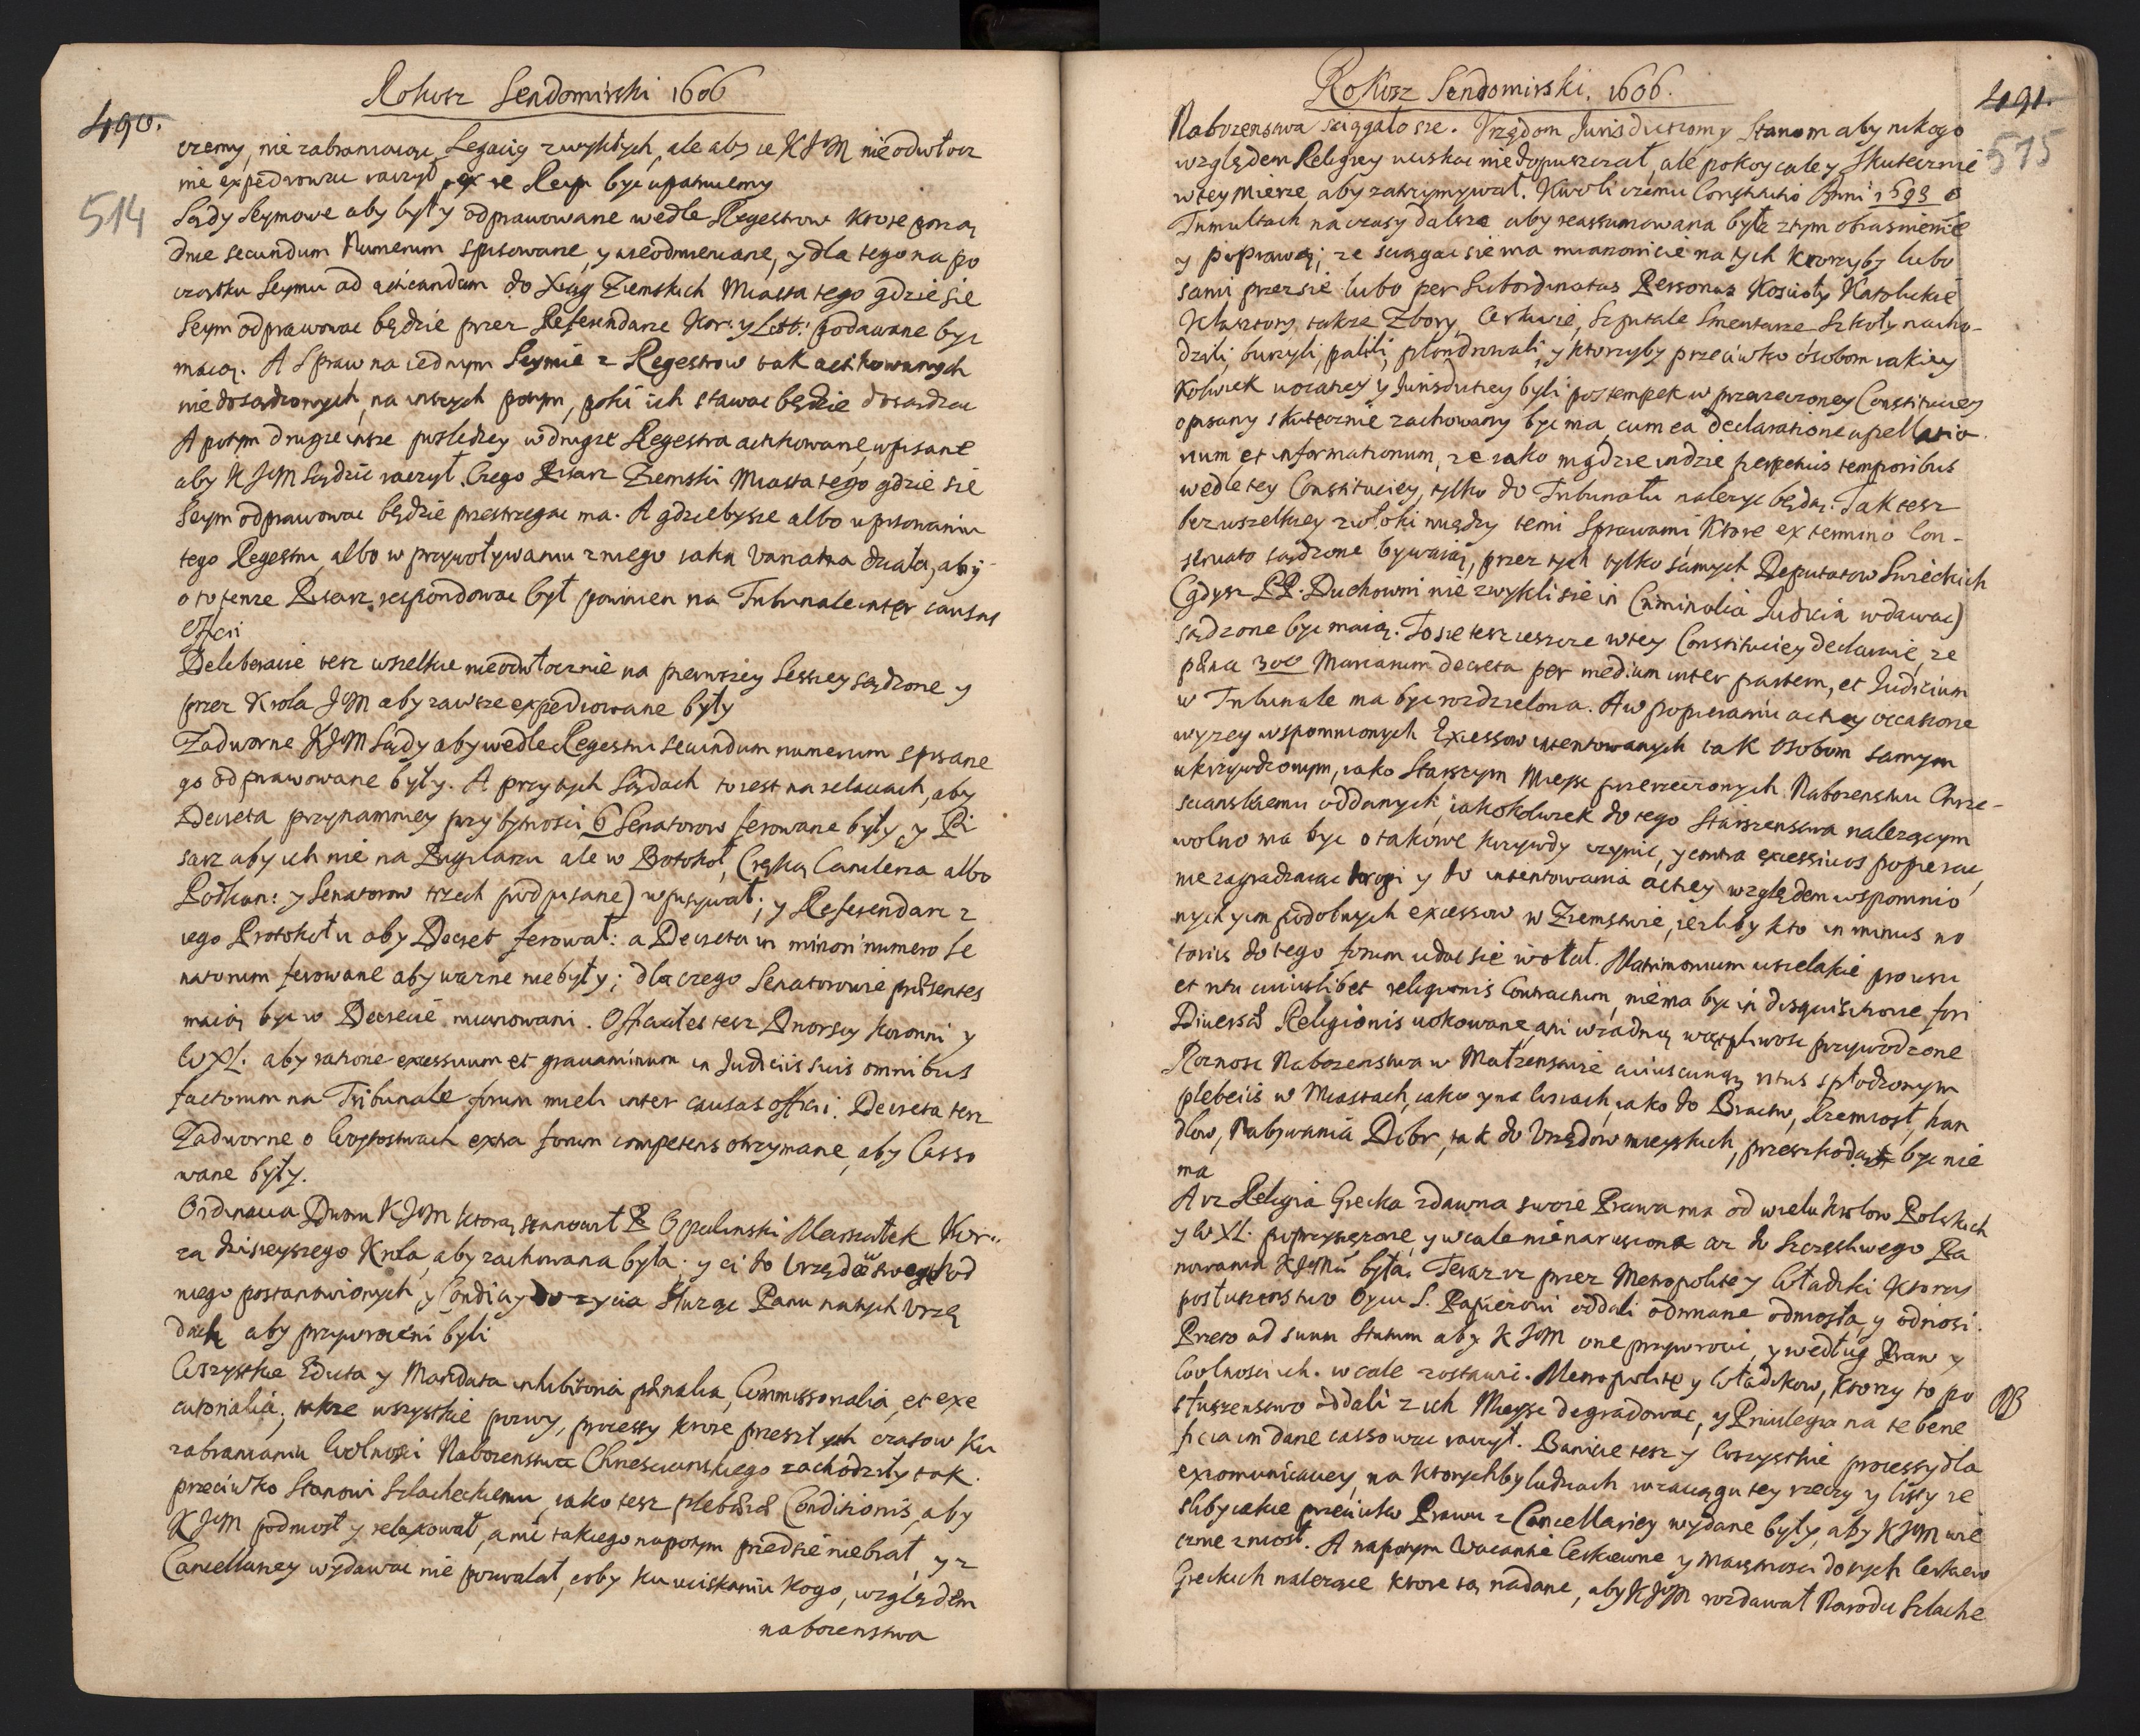 Rokosz Sendomirski 1606
490.
514
czemy, nie zabraniaiąc Legaciy zwykłych, ale aby ie KJM nieodwłocz
nie expediowac raczył, ex re Reip. byc upatruiemy
Sądy Seymowe aby były odprawowane wedle Regestrow ktore porzą
dnie secundum Numerum spisowane, y nieodmieniane, y dla tego na po
czątku Seymu ad acticandum do Xiąg Ziemskich Miasta tego gdzie sie
Seym odprawowac będzie przez Referendarze Kor: y Litt: podawane byc
maią. A Spraw na iednym Seymie z Regestrow tak actikowanych
niedosądzonych, na inszych potym, poki ich stawac będzie dosądzac
A potym drugie insze posledzey w drugie Regestra actikowane, wpisane
aby KJeM Sądzic raczył. Czego Pisarz Ziemski Miasta tego gdzie sie
Seym odprawowac będzie przestrzegac ma. A gdzieby sie albo w pisowaniu
tego Regestru albo w przywoływaniu z niego iaka Variatia działa, aby
o to tenze Pisarz respondowac był powinien na Tribunale inter causas
officii
Deliberacie tesz wszelkie nieodwłocznie na pierwszey Sessiey sądzone y
przez Krola JM aby zawsze expediowane były
Zadworne KJM Sądy aby wedle Regestru secundum numerum spisane
go odprawowane były. A przy tych Sądach to iest na relaciach, aby
Decreta przynamniey przy bytnosci 6 Senatorow ferowane były, y Pi
sarz aby ich nie na Pugilaru ale w Protokoł, (ręką Canclerza albo
Podkan: y Senatorow trzech podpisane) wpisywał; y Referendarz z
iego Protokołu aby Decret ferował: a Decreta in minori numero Se
natorum ferowane aby wazne niebyły; dla czego Senatorowie præsentes
maią byc w Decrecie mianowani. Officiales tesz Dworscy Koronni y
WXL. aby ratione excessuum et gravaminum in Judiciis suis omnibus
factorum na Tribunale forum mieli inter causas officii. Decreta tesz
Zadworne o Woytostwach extra forum competens otrzymane, aby Casso
wane były.
Ordinacia Dworu KJM ktorą stanowił P. Opalinski Marszałek Kor:
za dzisieyszego Krola, aby zachowana była; y ci do Urzędow swego od
niego postanowionych, y Condiciy do zycia Sluząc Panu na tych Urzę
dach aby przywroceni byli
Wszystkie Edicta y Mandata inhibitoria pænalia, Commissionalia, et exe
cutorialia; takze wszystkie pozwy, processy ktore przeszłych czasow ku
zabranianiu Wolnosci Nabozenstwa Chrescianskiego zachodziły tak
przeciwko Stanowi Szlacheckiemu, iako tesz plebeiæ Conditionis, aby
KJeM podniosł y relaxował, a nic takiego napotym przed sie niebrał, y z
Cancellariey wydawac nie pozwalał, coby ku uciskaniu kogo, względem
nabozenstwa
Rokosz Sendomirski. 1606.
491.
515
Nabozenstwa sciągało sie. Urzędom Jurisdictiomy Stanom aby nikogo
względem Religiey uciskac niedopuszczał, ale pokoy cale y Skutecznie
w tey mierze, aby zatrzymywał. Kwoli czemu Constitutio Anni 1593 o
Tumultach na czasy dalsze aby reassumowana była z tym obiasnienie
y poprawą; ze sciągac sie ma mianowicie na tych ktorzyby lubo
sami przez sie lubo per Subordinatas Personas Koscioły Katolickie
Klasztory, takze Zbory, Cerkwie, Szpitale Smentarze Szkoły nacho-
dzili, burzyli, palili, plondrowali, y ktorzyby przeciwko osobom iakiey
Kolwiek vocatiey y Jurisdictiey byli postempek w przerzeczoney Constituciey
opisany skutecznie zachowany byc ma, cum ea declaratione apellatio
num et informationum, ze iako nigdzie indzie perpetuis temporibus
wedle tey Constituciey, tylko do Tribunału nalezyc będą. Tak tesz
bez wszelkiey zwłoki między temi Sprawami ktore ex termino Con-
servato sądzone bywaią, przez tych tylko samych Deputatow Swieckich
(gdysz PP. Duchowni nie zwykli sie in Criminalia Judicia wdawac)
sądzone byc maią. To sie tesz ieszcze w tey Constituciey declaruie, ze
pæna 300 Marcarum decreta per medium inter partem, et Judicium
w Tribunale ma byc rozdzielona. A w popieraniu actiey occasione
wyzey wspomnionych Excessow intentowanych tak Osobom samym
ukrzywdzonym, iako Starszym Mieysc przerzeczonych Nabozenstwu Chrze-
scianskiemu oddanych, iakokolwiek do tego Starszenstwa nalezącym
wolno ma byc o takowe krzywdy czynic, y contra excessivos popierac,
nie zagradzaiąc drogi y do intentowania actiey względem wspomnio
nych ym podobnych excessow w Ziemstwie, iezliby kto in minus no
toriis do tego forum udac sie wolał. Matrimonium wszelakie pro usu
et ritu cuiuslibet religionis Contractum, niema byc in disquisitione fori
Diversæ Religionis vokowane, ani w zadną wątpliwosc przywodzone
Roznosc Nabozenstwa w Małzenswie cuiuscunque ritus spłodzonym
plebeiis w Miastach, iako y na Wsiach, iako do Bractw, Rzemiosł, han
dlow, Nabywania Dobr, tak do Urzędow mieyskich, przeszkodą byc nie
ma
A iz Religia Grecka zdawna swoie Prawa ma od wielu Krolow Polskich
y WXL. poprzysięzone, y wcale nienaruszone az do Szczęsliwego Pa
nowania KJeMci była. Teraz iz przez Metropolite y Władiki ktorzy
posłuszenstwo Oycu S. Papiezowi oddali odmiane odniosła, y odnosi.
Przeto ad suum Statum aby KJeM one przywrocic, y według Praw y
Wolnosci ich. wcale zostawi. Metropolitę y Władikow, ktorzy to po
słuszenstwo oddali z ich Mieysc degradowac, y Privilegia na te bene
NB
ficia im dane cassowac raczył. Banicie tesz y Wszystkie processy dla
excomunicaciey, na ktorychby ludziach wzaciągu tey rzeczy y listy ie
sliby iakie przeciwko Prawu z Cancellariey wydane były, aby KJeM wie
cznie zniosł. A napotym Vacantie Cerkiewne y maiętnosci do tych Cerkiew
Greckich nalezące ktore są nadane, aby KJeM rozdawał Narodu Szlache